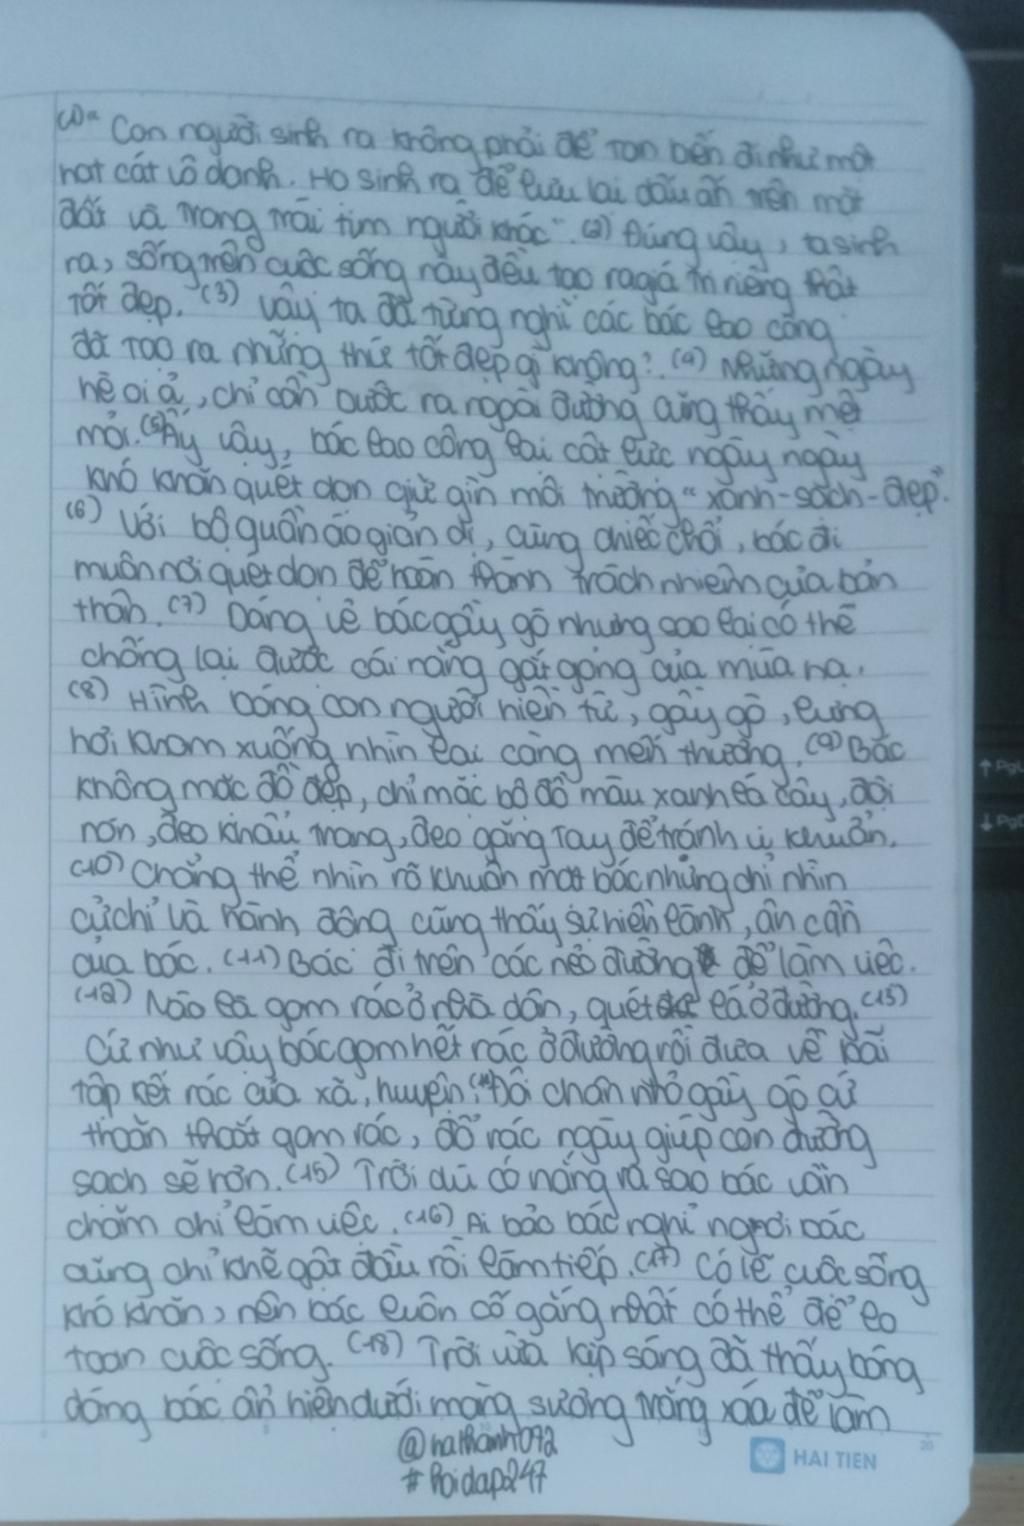 (1) "Con người sinh ra không phải để tan biến đi như một
hạt cát vô danh. Họ sinh ra để lưu lại dấu ấn trên mặt
đất và trong trái tim người khác". (2) Đúng vậy, ta sinh
ra, sống trên cuộc sống này đều tạo ra giá trị riêng thật
tốt đẹp. (3) Vậy ta đã từng nghĩ các bác lao công
đã tạo ra những thứ tốt đẹp gì không? (4) Những ngày
hè oi ả, chỉ cần bước ra ngoài đường cũng thấy mệt
mỏi. (5) Ấy vậy, bác lao công lại cật lực ngày ngày
khó khăn quét dọn giữ gìn môi trường "xanh-sạch-đẹp".
(6) Với bộ quần áo giản dị, cùng chiếc chổi, bác đi
muôn nơi quét dọn để hoàn thành trách nhiệm của bản
thân. (7) Dáng vẻ bác gầy gò nhưng sao lại có thể
chống lại được cái nắng gắt gỏng của mùa hạ.
(8) Hình bóng con người hiền từ, gầy gò, lưng
hơi khom xuống nhìn lại càng mến thương. (9) Bác
không mặc đồ đẹp, chỉ mặc bộ đồ màu xanh lá cây, đội
nón, đeo khẩu trang, đeo găng tay để tránh vi khuẩn.
(10) Chẳng thể nhìn rõ khuôn mặt bác nhưng chỉ nhìn
cử chỉ và hành động cũng thấy sự hiền lành, ân cần
của bác. (11) Bác đi trên các nẻo đường để làm việc.
(12) Nào là gom rác ở nhà dân, quét lá ở đường. (13)
Cứ như vậy bác gom hết rác ở đường rồi đưa về bãi
tập kết rác của xã, huyện. (14) Đôi chân nhỏ gầy gò cứ
thoăn thoắt gom rác, đổ rác ngày giúp con đường
sạch sẽ hơn. (15) Trời dù có nắng và sao bác vẫn
chăm chỉ làm việc. (16) Ai bảo bác nghỉ ngơi bác
cũng chỉ khẽ gật đầu rồi làm tiếp. (17) Có lẽ cuộc sống
khó khăn, nên bác luôn cố gắng nhất có thể để lo
toan cuộc sống. (18) Trời vừa kịp sáng đã thấy bóng
dáng bác ẩn hiện dưới màng sương trắng xóa để làm
@hathanh072
#hoidap247
HAI TIEN
20
↑ PgU
↓ PgD